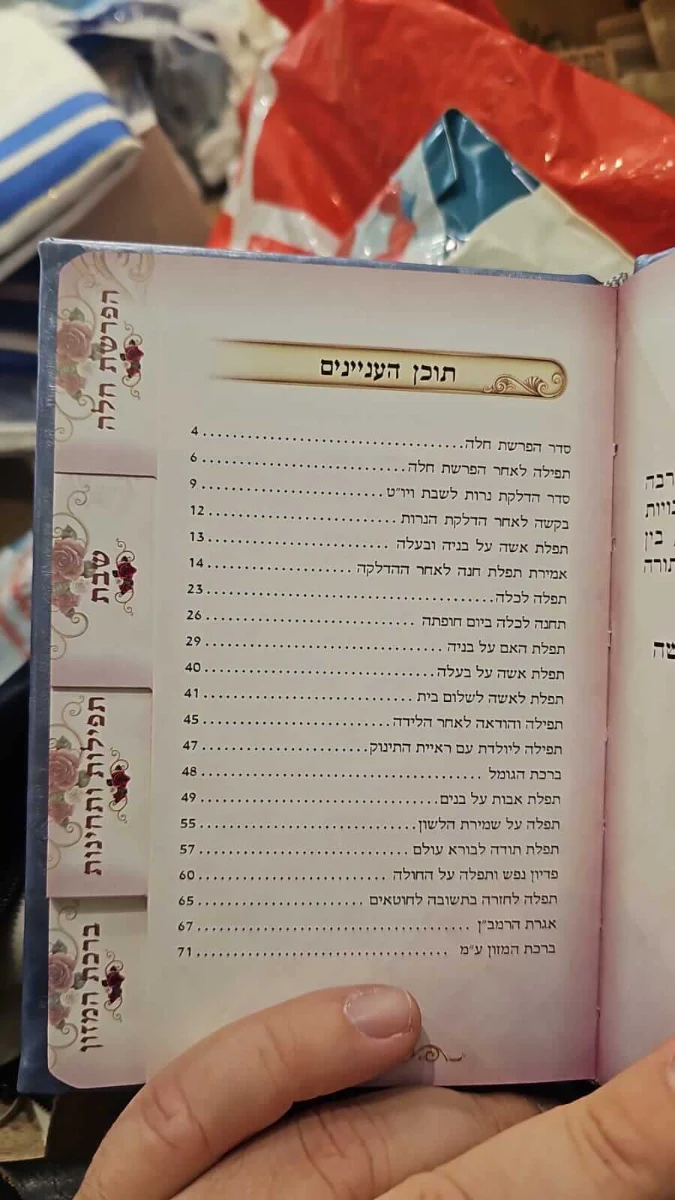 תוכן העניינים
סדר הפרשת חלה 4
תפילה לאחר הפרשת חלה 6
סדר הדלקת נרות לשבת ויו״ט 9
בקשה לאחר הדלקת הנרות 12
תפלת אשה על בניה ובעלה 13
אמירת תפלת חנה לאחר ההדלקה 14
תפלה לכלה 23
תחנה לכלה ביום חופתה 26
תפלת האם על בניה 29
תפלת אשה על בעלה 40
תפלת לאשה לשלום בית 41
תפילה והודאה לאחר הלידה 45
תפילה ליולדת עם ראיית התינוק 47
ברכת הגומל 48
תפלת אבות על בנים 49
תפלה על שמירת הלשון 55
תפלת תודה לבורא עולם 57
פדיון נפש ותפלה על החולה 60
תפלה לחזרה בתשובה לחוטאים 65
אגרת הרמב״ן 67
ברכת המזון ע״מ 71
הפרשת חלה
שבת
תפילות ותחינות
ברכת המזון
רבה
בין
תורה